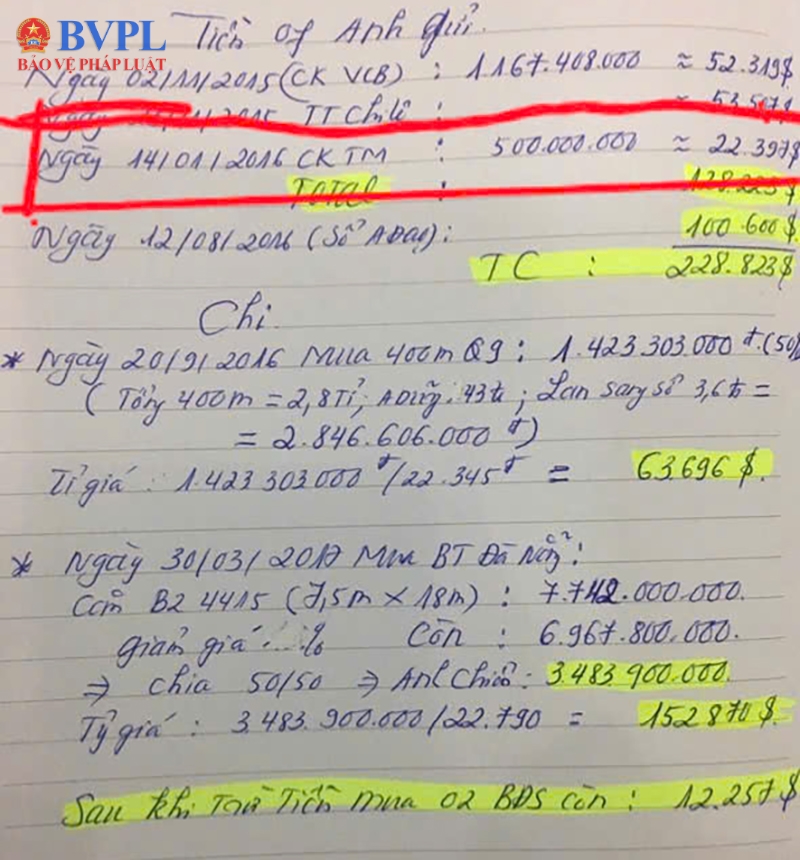 BVPL
BẢO VỆ PHÁP LUẬT
Tiền of Anh gửi.
Ngày 02/11/2015 (CK VCB) : 1.167.408.000 ≈ 52.319$
Ngày 2015 TT Chi :
Ngày 14/01/2016 CK TM : 500.000.000 ≈ 22.397$
TOTAL : 128.223$
Ngày 12/08/2016 (Số ADũng): 100.600$
TC : 228.823$
Chi
* Ngày 20/9/2016 Mua 400m Q9 : 1.423.303.000 đ (50%
( Tổng 400m = 2,8Tỉ; ADũng: 43tr; Lan sang sổ 3,6tr =
= 2.846.606.000 đ)
Tỉ giá : 1.423.303.000 đ/22.345 đ = 63.696 $.
* Ngày 30/03/2017 Mua BT Đà Nẵng:
Căn B2 4415 (7,5m x 18m) : 7.742.000.000.
giảm giá % Còn : 6.967.800.000.
⇒ chia 50/50 ⇒ Anh : 3.483.900.000.
Tỷ giá : 3.483.900.000/22.790 = 152.870 $.
Sau khi Trừ Tiền mua 02 BĐS còn : 12.257 $